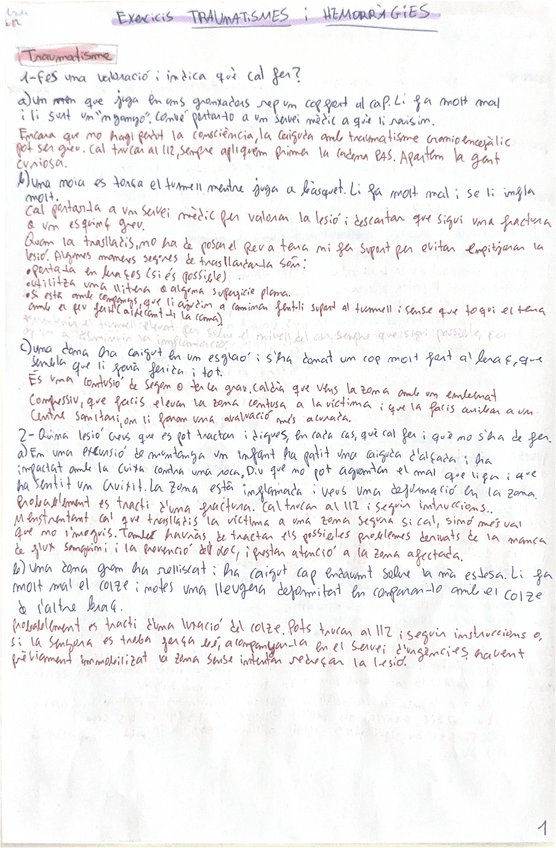 Exercicis TRAUMATISMES i HEMORRÀGIES
Traumatisme
1-Fes una valoració i indica què cal fer?
a) Un nen que juga en uns gronxadors rep un cop fort al cap. Li fa molt mal
i li surt un "nyanyo". Convé portar-lo a un servei mèdic a què li revisin.
Encara que no hagi perdut la consciència, la caiguda amb traumatisme cranioencefàlic
pot ser greu. Cal trucar al 112, sempre apliquem primer la cadena PAS. Apartem la gent
curiosa.
b) Una noia es torça el turmell mentre juga a bàsquet. Li fa molt mal i se li infla
molt.
Cal portar-la a un servei mèdic per valorar la lesió i descartar que sigui una fractura
o un esquinç greu.
Quan la traslladis, no ha de posar el peu a terra ni fer suport per evitar empitjorar la
lesió. Algunes maneres segures de traslladar-la són:
• Portar-la en braços (si és possible)
• Utilitza una llitera o alguna superfície plana.
• Si està amb companys, que li ajudin a caminar fent-li suport al turmell i sense que toqui el terra
amb el peu ferit (aixecant-li la cama)
c) Una dona ha caigut en un esglaó i s'ha donat un cop molt fort al braç, que
sembla que li farà ferida i tot.
És una contusió de segon o tercer grau, caldria que vens la zona amb un embenat
compressiu, que facis elevar la zona contusa a la víctima i que la facis arribar a un
centre sanitari, on li faran una avaluació més acurada.
2- Quina lesió creus que es pot tractar i digues, en cada cas, què cal fer i què no s'ha de fer.
a) En una excursió de muntanya un infant ha patit una caiguda d'alçada i ha
impactat amb la cuixa contra una roca. Diu que no pot aguantar el mal que li fa i que
ha sentit un cruixit. La zona està inflamada i veus una deformació en la zona.
Probablement es tracti d'una fractura. Cal trucar al 112 i seguir instruccions.
Mentrestant cal que traslladis la víctima a una zona segura si cal, sinó més val
que no l'moguis. També hauràs de tractar els possibles problemes derivats de la manca
de flux sanguini i la prevenció del xoc, i prestar atenció a la zona afectada.
b) Una dona gran ha relliscat i ha caigut cap endavant sobre la mà estesa. Li fa
molt mal el colze i notes una lleugera deformitat en comparar-lo amb el colze
de l'altre braç.
Probablement es tracti d'una luxació del colze. Pots trucar al 112 i seguir instruccions o,
si la senyora es troba força bé, acompanyar-la en el servei d'urgències, havent
prèviament immobilitzat la zona sense intentar recol·locar la lesió.
1